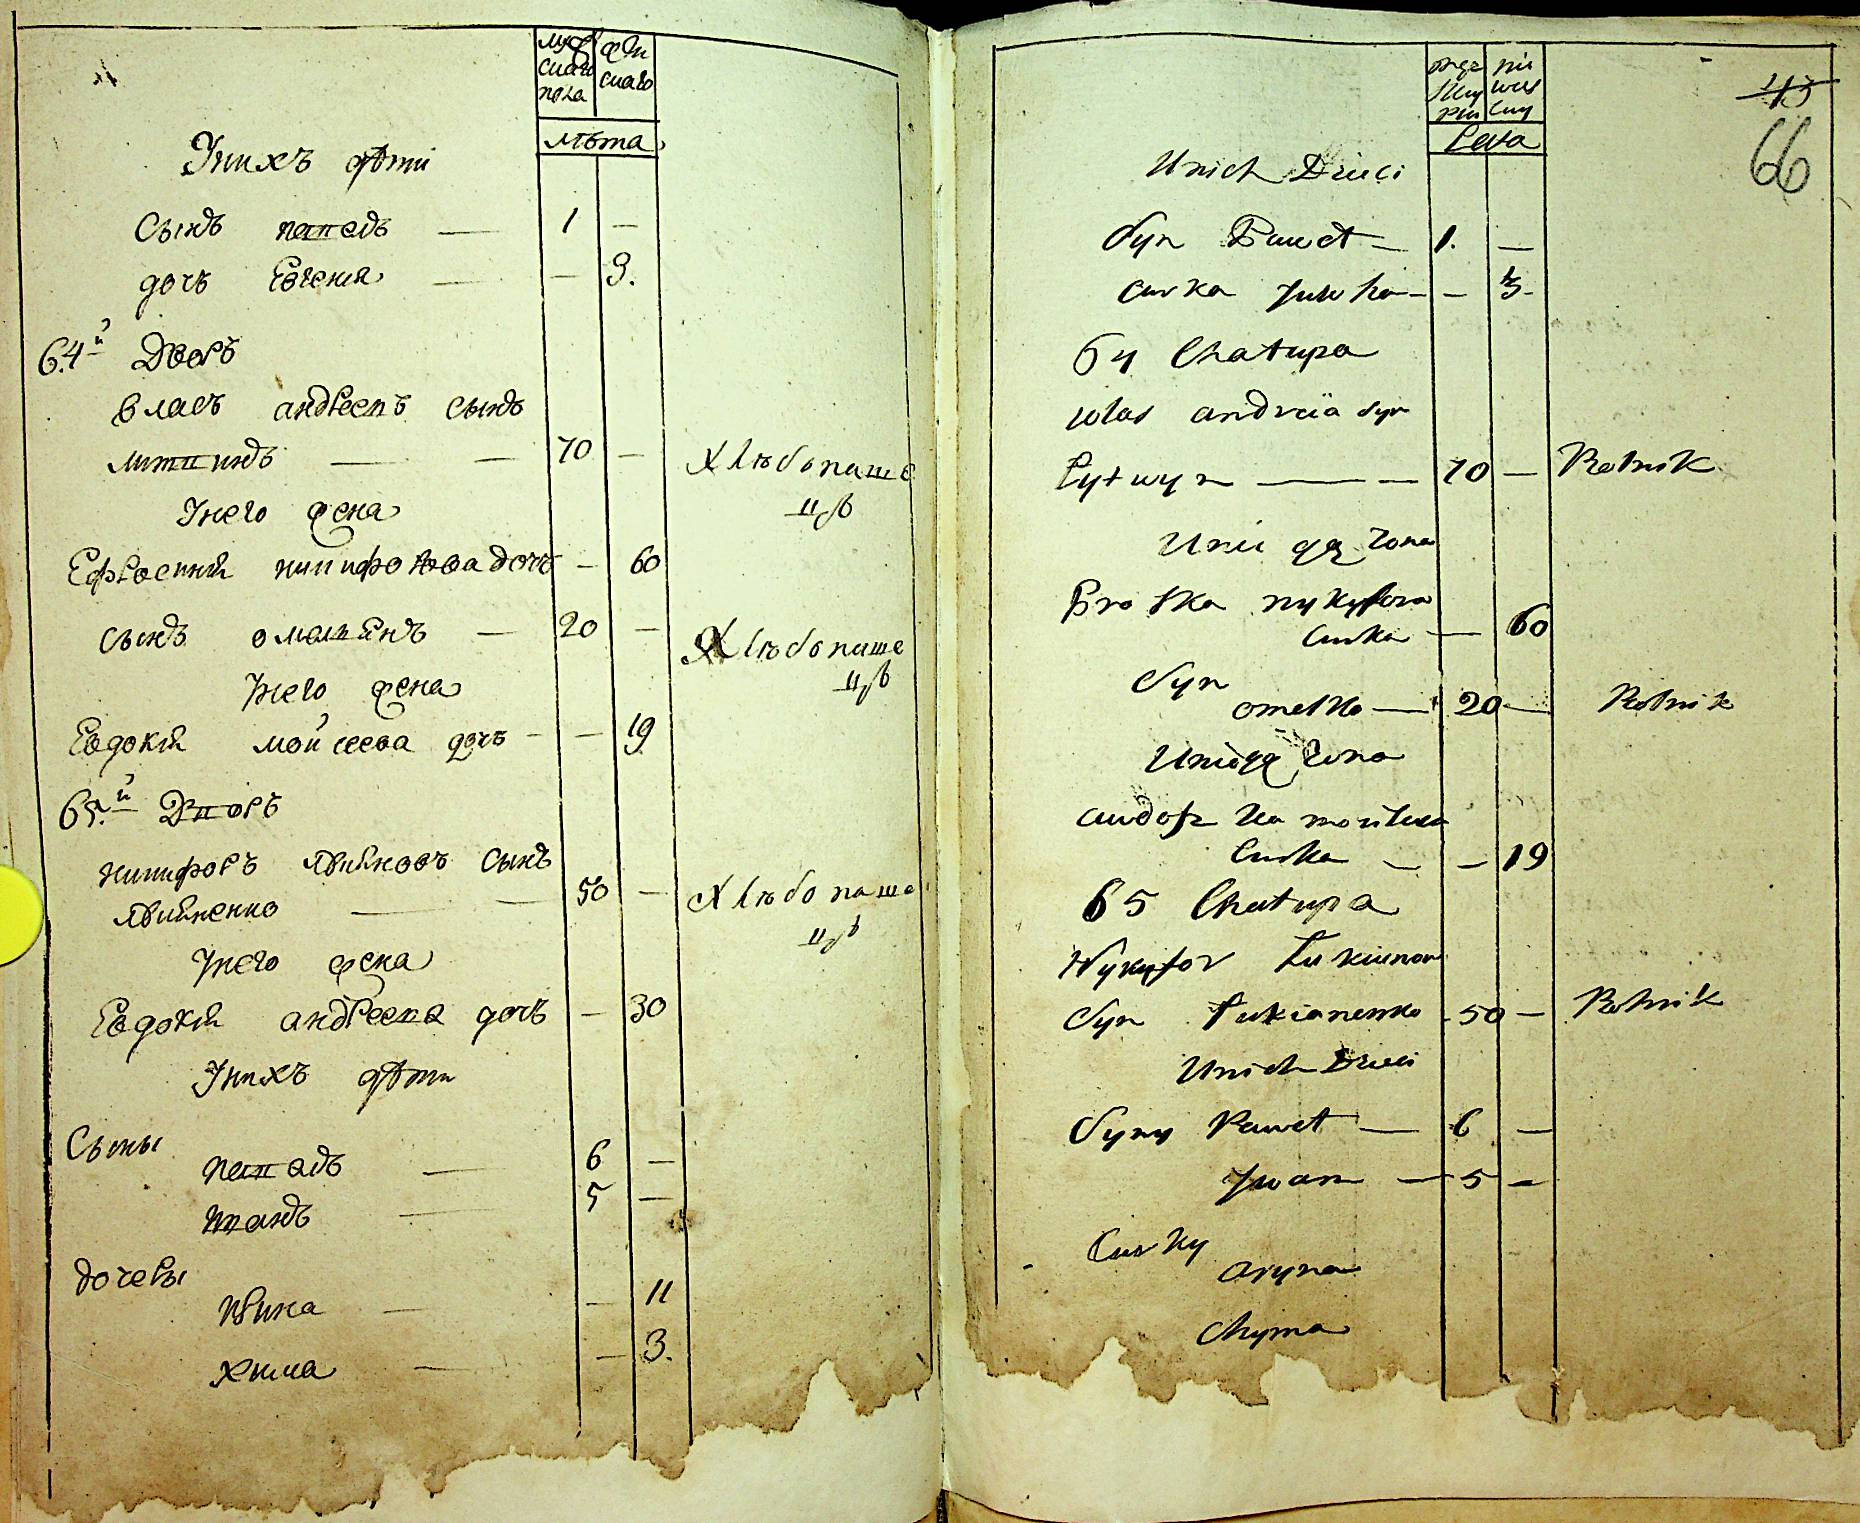 мужескаго пола
женскаго
лѣта
Унихъ дѣти
Сынъ павелъ — 1 —
дочь Евгения — — 3.
64й Дворъ
власъ андреевъ сынъ
литвинъ — — 70 — Хлѣбопаше
цъ
Унего жена
Ефросинія никифорова дочь — 60
сынъ омелянъ — 20 — Хлѣбопаше
цъ
Унего жена
Евдокія мойсеева дочь — — 19
65.й Дворъ
никифоръ лукяновъ сынъ
лукяненко — — 50 — Хлѣбопаше
цъ
Унего жена
Евдокія андреева дочь — 30
Унихъ дѣти
Сыны
павелъ — 6 —
иванъ — 5 —
дочеры
— — 11
хима — — 3.
Lata
45
66
Unich Dzieci
Syn Paweł — 1. —
Curka — — 3 —
64 Chałupa
wlas andreia Syn
Lytwyn — — 70 — Rolnik
Uniego Zona
Proska nykyfora
Curka — 60
Syn
omelko — 20 — Rolnik
Uniego Zona
moiseia
Curka — — 19
65 Chałupa
Nykyfor Łukianow
Syn Łukianenko 50 — Rolnik
Unich Dzieci
Syny Paweł — 6 —
Jwan — 5 —
Curky
aryna
Chyma